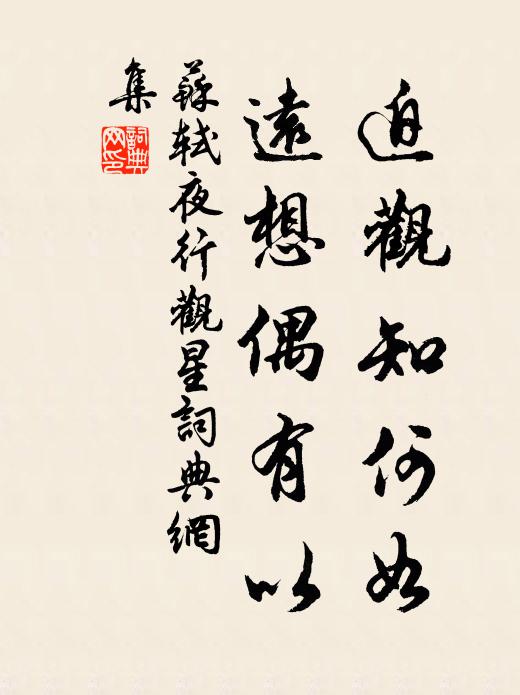 迫觀知何如
遠想偶有以
蘇軾夜行觀星詞典網
集
詞典網印